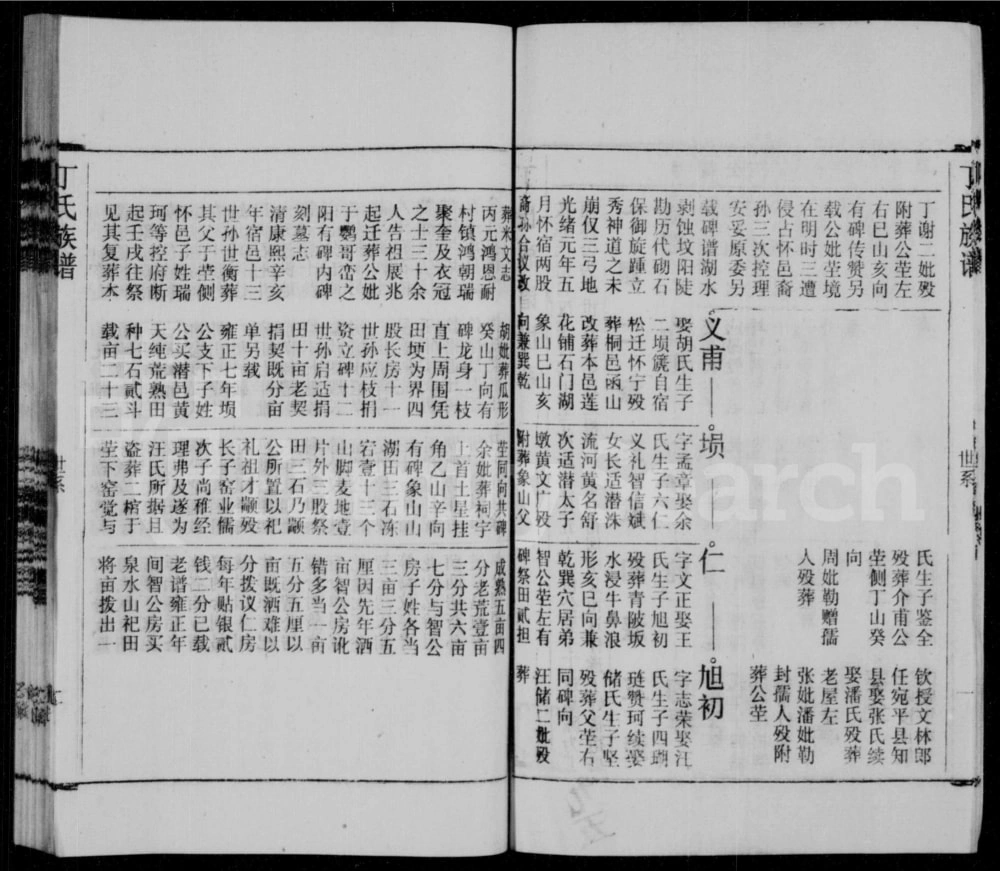 丁氏族谱
世系
丁谢二妣殁
附葬公茔左
右巳山亥向
有碑传赞另
载公妣茔境
在明时三遭
侵占怀邑裔
孙三次控理
安妥原委另
载碑谱湖水
剥蚀坟阳陡
勘历代砌石
保御旋踵立
秀神道之未
崩仅三弓地
光绪元年五
月怀宿两股
裔孙合议改
氏生子鉴全
殁葬介甫公
茔侧丁山癸
向
周妣勒赠儒
人殁葬
钦授文林郎
任宛平县知
县娶张氏续
娶潘氏殁葬
老屋左
张妣潘妣勒
封孺人殁附
葬公茔
义甫
埙
仁
旭初
娶胡氏生子
二埙篪自宿
松迁怀宁殁
葬桐邑函山
改葬本邑莲
花铺石门湖
象山巳山亥
向兼巽乾
字孟章娶余
氏生子六仁
义礼智信斌
女长适潜洙
流河黄名舒
次适潜太子
墩黄文广殁
附葬象山父
字文正娶王
氏生子旭初
殁葬青陂坂
水浸牛鼻浪
形亥巳向兼
乾巽穴居弟
智公茔左有
碑祭田贰担
字志荣娶江
氏生子四瑚
琏赞珂续娶
储氏生子坚
殁葬父茔右
同碑向
汪储二妣殁
葬
葬米文志
丙元鸿恩耐
村镇鸿朝瑞
聚奎及衣冠
之士三十余
人告祖展兆
起迁葬公妣
于鹦哥峦之
阳有碑内碑
刻墓志
清康熙辛亥
年宿邑十三
世孙世衡葬
其父于茔侧
怀邑子姓瑞
珂等控府断
起壬戌往祭
见其复葬本
胡妣葬瓜形
癸山丁向有
碑龙身一枝
直上周围凭
田埂为界四
股长房十一
世孙应枝捐
资立碑十二
世孙启适捐
田十亩老契
捐契既分亩
单另载
雍正七年埙
公支下子姓
公买潜邑黄
天纯荒熟田
种七石贰斗
载亩二十三
茔同向共碑
余妣葬祠宇
上首土星挂
角乙山辛向
有碑象山山
湖田三石冻
宕壹十三个
山脚麦地壹
片外三股祭
田三石乃颛
公所置以祀
礼祖才颛殁
长子窑业儒
次子尚稚经
理弗及遂为
汪氏所据且
盗葬二棺于
茔下窑觉与
成熟五亩四
分老荒壹亩
三分共六亩
七分与智公
房子姓各当
三亩三分五
厘因先年洒
亩智公房讹
错多当一亩
五分五厘以
亩既洒难以
分拨议仁房
每年贴银贰
钱二分已载
老谱雍正年
间智公房买
泉水山祀田
将亩拨出一
丁氏族谱
世系